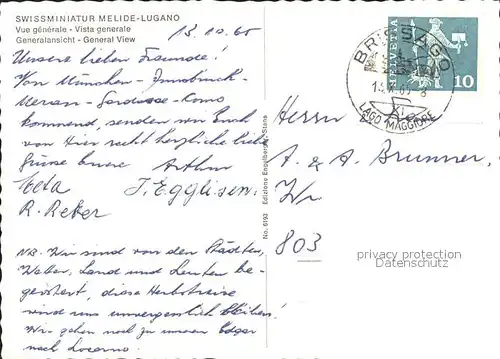 SWISSMINIATUR MELIDE-LUGANO
Vue générale - Vista generale
Generalansicht - General View
13.10.65
Unsere lieben Freunde!
Von München - Innsbruck -
Meran - Gardasee - Como
kommend, senden wir Euch
von Hier recht herzliche liebe
Grüsse Arthur
Meta J. Egglisen
R. Reber
NB. Wir sind von den Städten,
Land und Leuten be-
geistert, diese Herbstreise
wird uns unvergesslich bleiben!
Wir gehen noch zu unserem Edgar
nach Locarno.
No. 6193 Edizione Engelberger, Stans
HELVETIA
10
BRISSAGO
LAGO MAGGIORE
Herrn
A. & A. Brunner,
803
privacy protection
Datenschutz